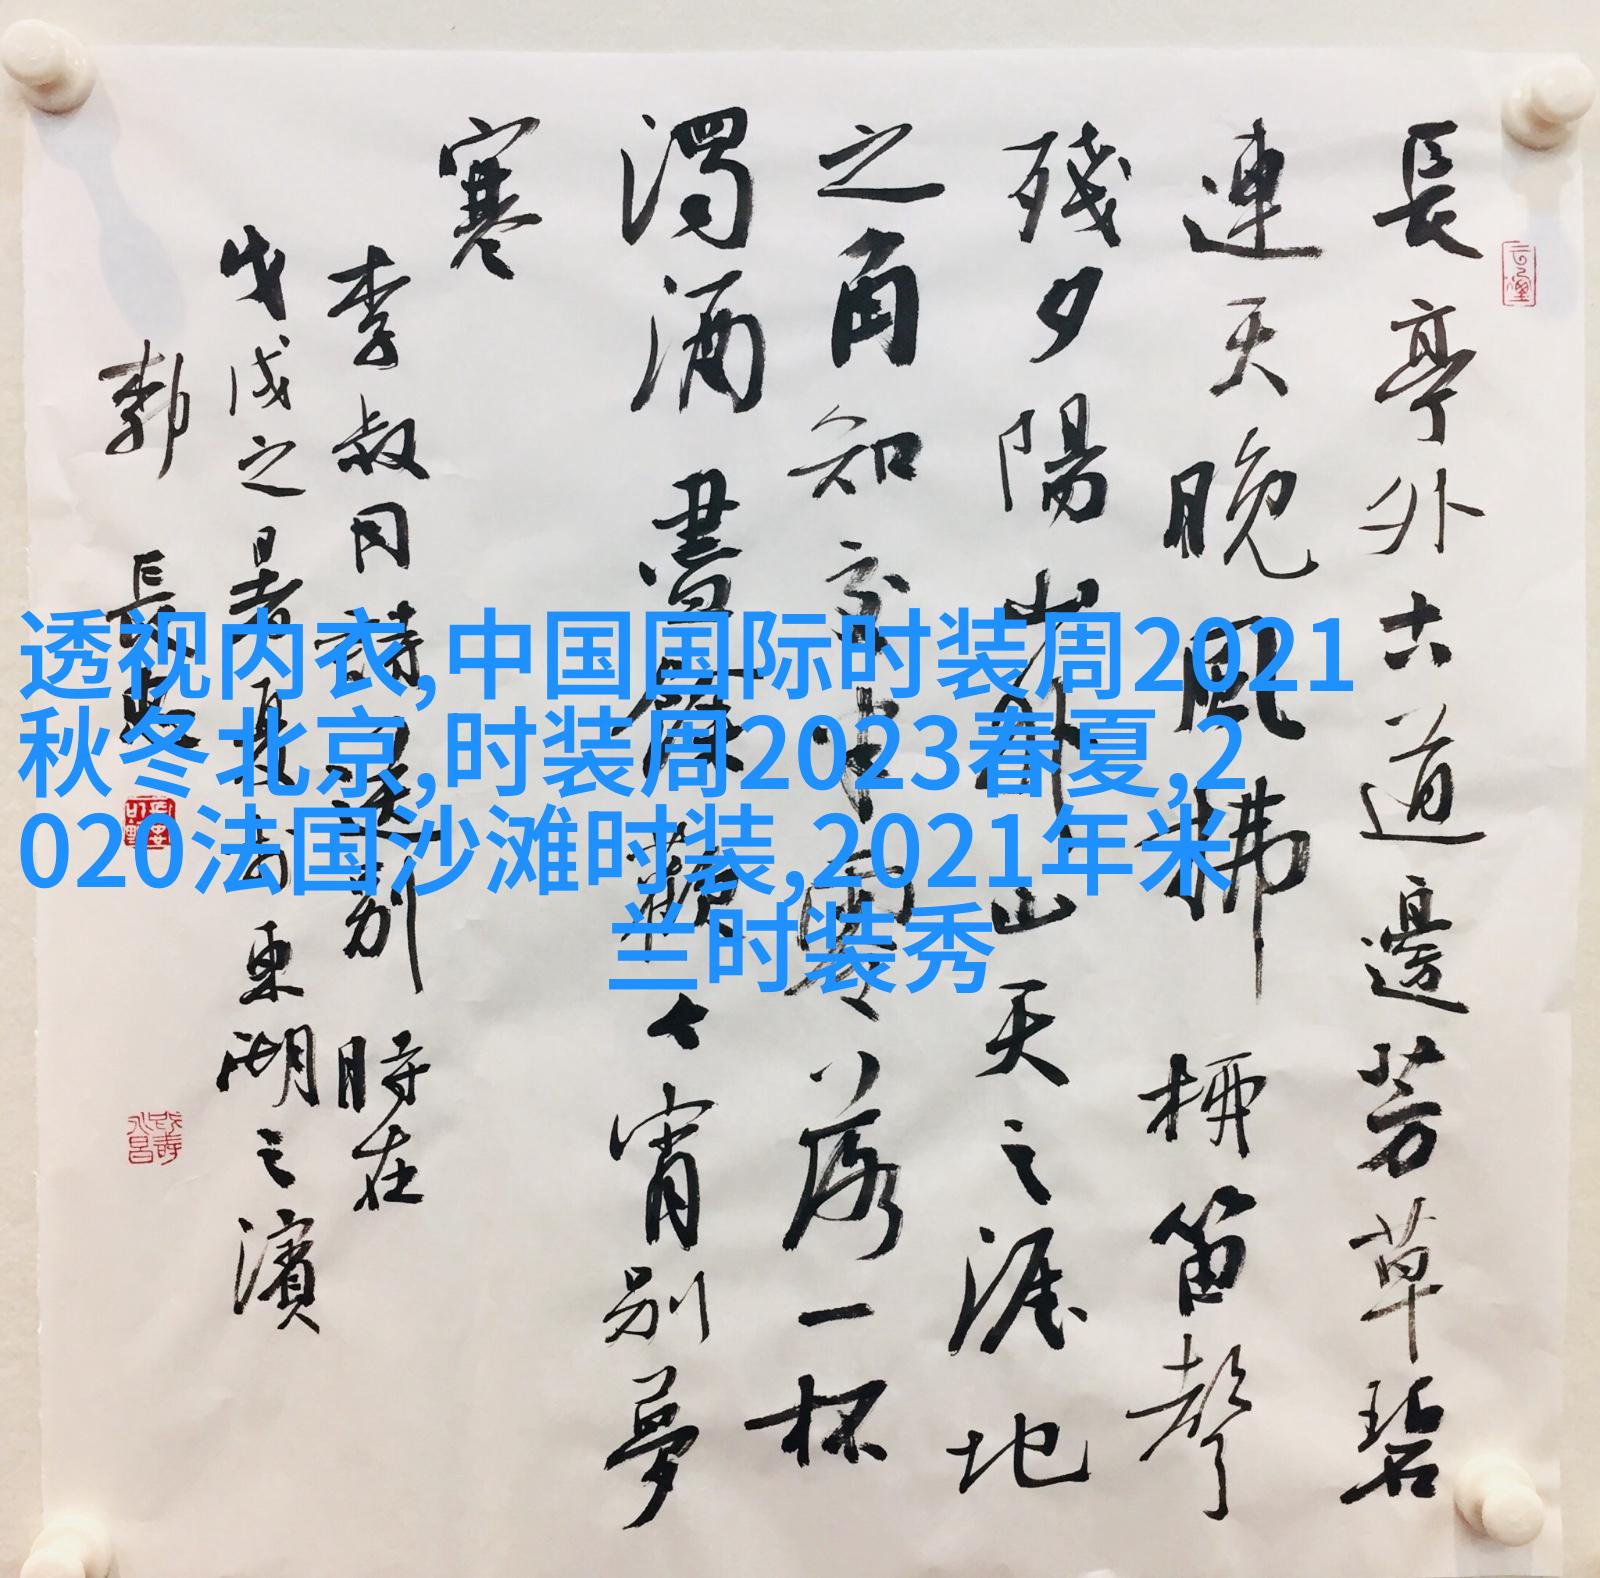 長亭外古道邊芳草碧
連天晚風拂柳笛聲
殘夕陽山外山天之涯地
之角知交半零落一杯
濁酒盡餘歡今宵別夢
寒
李叔同詩送別 時在
戊戌之暑夏於東湖之濱
長
透视内衣,中国国际时装周2021
秋冬北京,时装周2023春夏,2
020法国沙滩时装,2021年米
兰时装秀